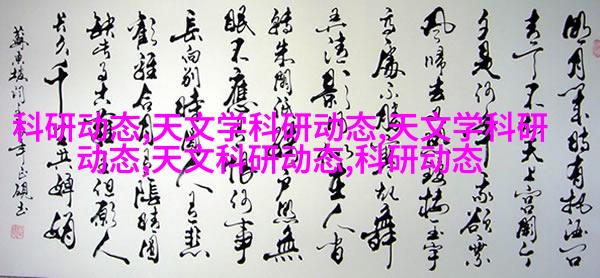 科研动态,天文学科研动态,天文学科研
动态,天文科研动态,科研动态
明月几时有把酒问
青天不知天上宫阙今
夕是何年我欲乘
风归去又恐琼楼玉宇
高处不胜寒起舞
弄清影何似在人间
转朱阁低绮户照无
眠不应有恨何事
长向别时圆人有悲
欢离合月有阴晴圆
缺此事古难全但愿人
长久千里共婵娟
苏东坡词